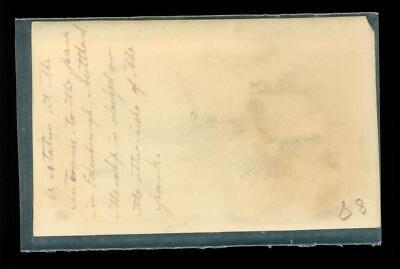 A statue at the
entrance to the park
in Edinburgh Scotland
the ship is nailed on
the other side of the
park.
88